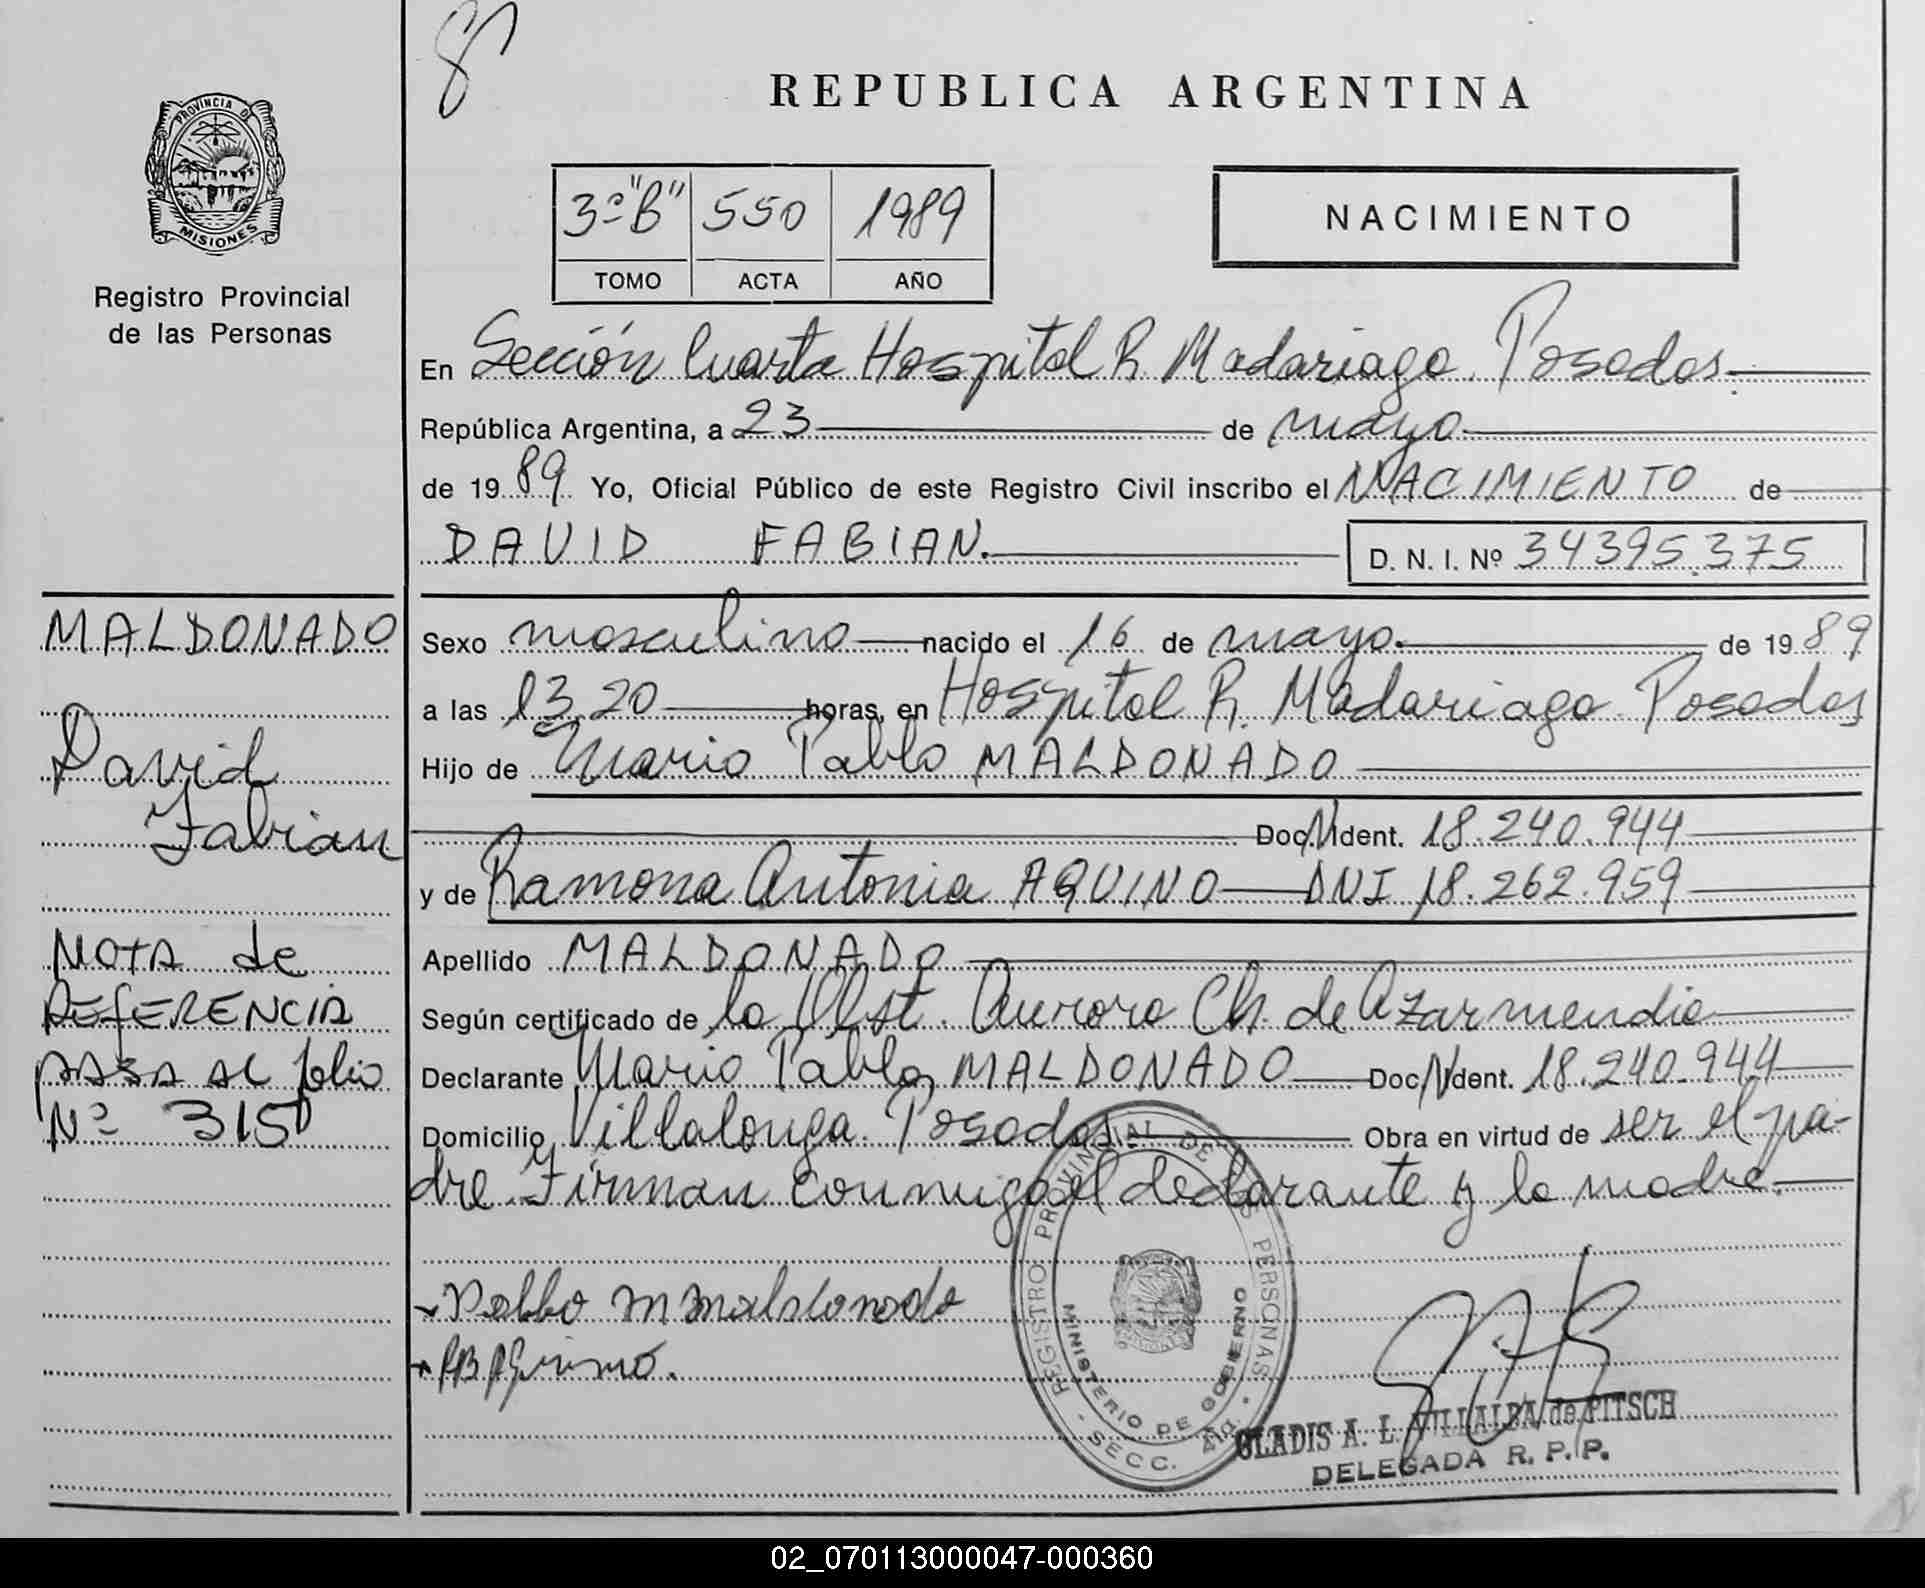 8
PROVINCIA DE
MISIONES
Registro Provincial
de las Personas
MALDONADO
David
Fabian
NOTA de
REFERENCIA
PASA AL folio
Nº 315
REPUBLICA ARGENTINA
3º"B" 550 1989
TOMO ACTA AÑO
NACIMIENTO
En Sección Cuarta Hospital R Madariaga. Posadas.
República Argentina, a 23 de mayo
de 1989 Yo, Oficial Público de este Registro Civil inscribo el NACIMIENTO de
DAVID FABIAN.
D. N. I. Nº 34395.375
Sexo masculino nacido el 16 de mayo. de 1989
a las 13,20 horas, en Hospital R. Madariaga. Posadas
Hijo de Mario Pablo MALDONADO
Doc.N.Ident. 18.240.944
y de Ramona Antonia AQUINO DNI 18.262.959
Apellido MALDONADO
Según certificado de la Obst. Aurora Ch. de Azarmendia
Declarante Mario Pablo MALDONADO Doc.N.Ident. 18.240.944
Domicilio Villalonga. Posadas. Obra en virtud de ser el pa-
dre. Firman conmigo el declarante y la madre.
Pabbo M Maldonado
REGISTRO PROVINCIAL DE LAS PERSONAS
MINISTERIO DE GOBIERNO
SECC. 4ta.
GLADIS A. L. VILLALBA de PITSCH
DELEGADA R. P. P.
02_070113000047-000360